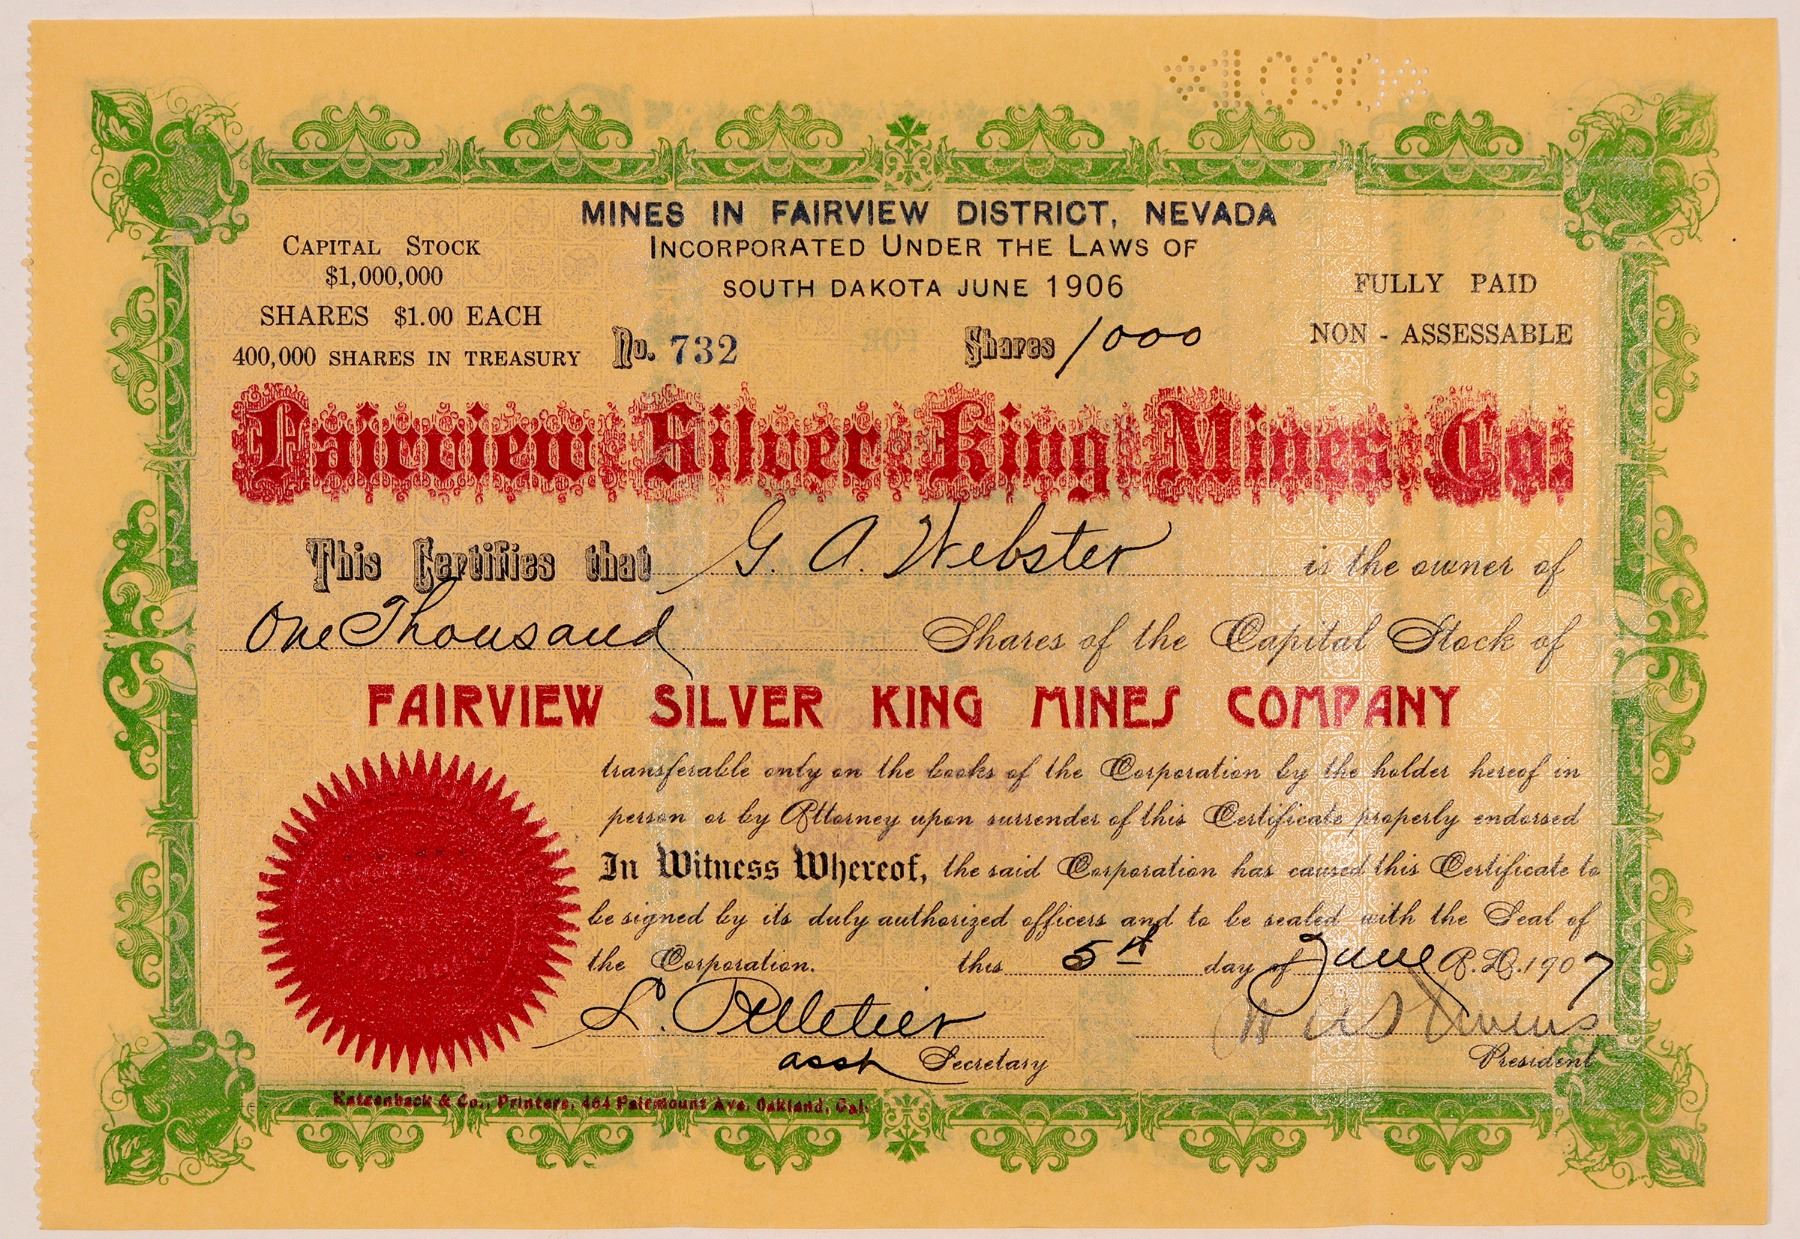 *1000*
MINES IN FAIRVIEW DISTRICT, NEVADA
INCORPORATED UNDER THE LAWS OF
SOUTH DAKOTA JUNE 1906
CAPITAL STOCK
$1,000,000
SHARES $1.00 EACH
400,000 SHARES IN TREASURY
FULLY PAID
NON - ASSESSABLE
No. 732 Shares 1000
Fairview Silver King Mines Co.
This Certifies that G. A. Webster is the owner of
One Thousand Shares of the Capital Stock of
FAIRVIEW SILVER KING MINES COMPANY
transferable only on the books of the Corporation by the holder hereof in
person or by Attorney upon surrender of this Certificate properly endorsed
In Witness Whereof, the said Corporation has caused this Certificate to
be signed by its duly authorized officers and to be sealed with the Seal of
the Corporation. this 5th day of June A.D. 1907
L. Pelletier
asst Secretary
President
Katzenbach & Co., Printers, 464 Fairmount Ave. Oakland, Cal.